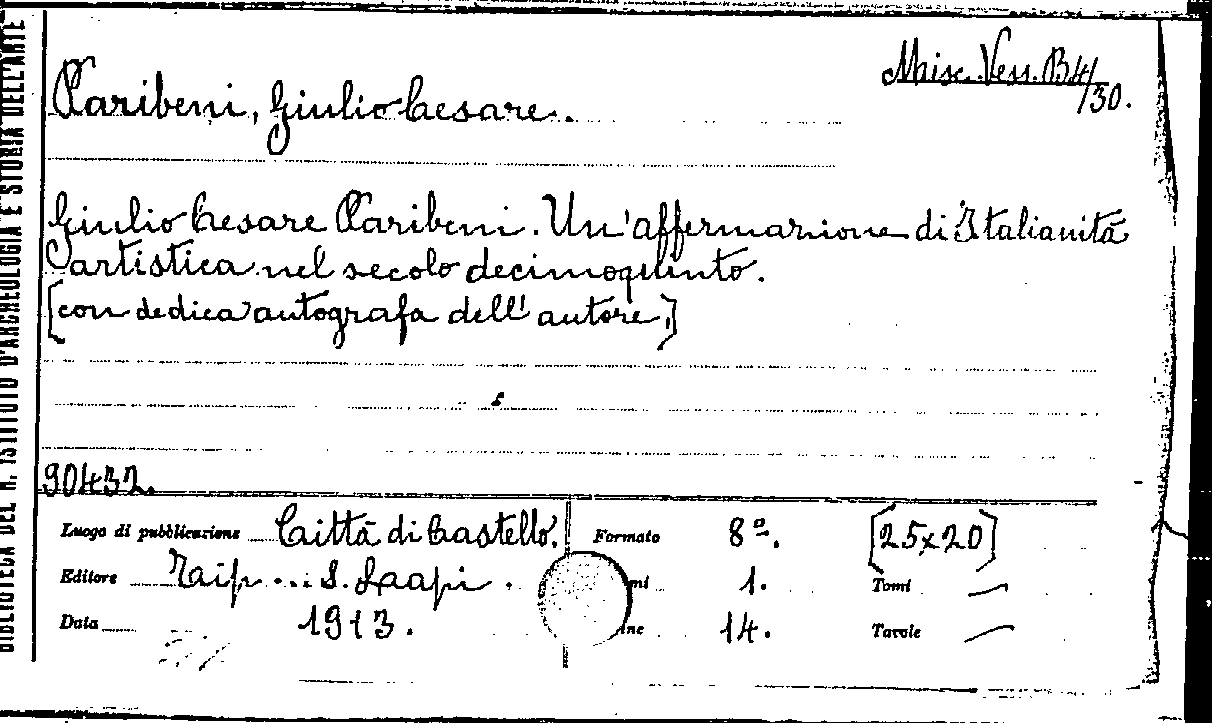 BIBLIOTECA DEL R. ISTITUTO D'ARCHEOLOGIA E STORIA DELL'ARTE
Misc. Vess. B4/30.
Paribeni, Giulio Cesare.
Giulio Cesare Paribeni. Un'affermazione di Italianità
artistica nel secolo decimoquinto.
[con dedica autografa dell'autore.]
90432.
Luogo di pubblicazione Città di Castello. Formato 8º. [25x20]
Editore S. Lapi. 1. Tomi —
Data 1913. 14. Tavole —